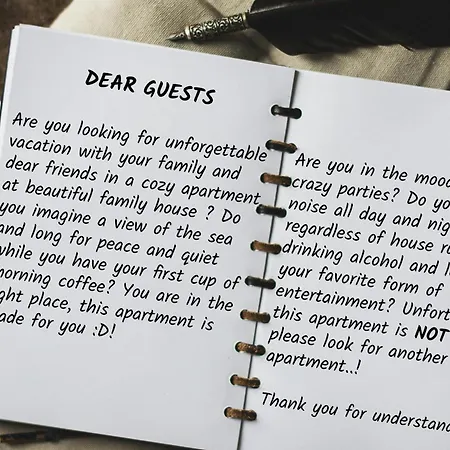 DEAR GUESTS
Are you looking for unforgettable
vacation with your family and
dear friends in a cozy apartment
at beautiful family house ? Do
you imagine a view of the sea
and long for peace and quiet
while you have your first cup of
morning coffee? You are in the
ght place, this apartment is
ade for you :D!
Are you in the mood
crazy parties? Do yo
noise all day and nig
regardless of house ru
drinking alcohol and l
your favorite form of
entertainment? Unfort
this apartment is NOT
please look for another
apartment..!
Thank you for understand